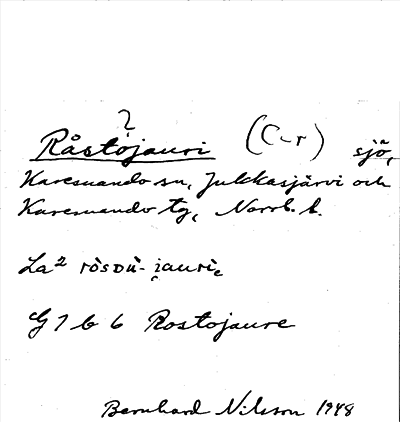 ?
Råstojauri (C-r) sjö,
Karesuando sn, Jukkasjärvi och
Karesuando tg, Norrb. l.
La² ròsᴅù-jaurìe
G 7 b 6 Rostojaure
Bernhard Nilsson 1948